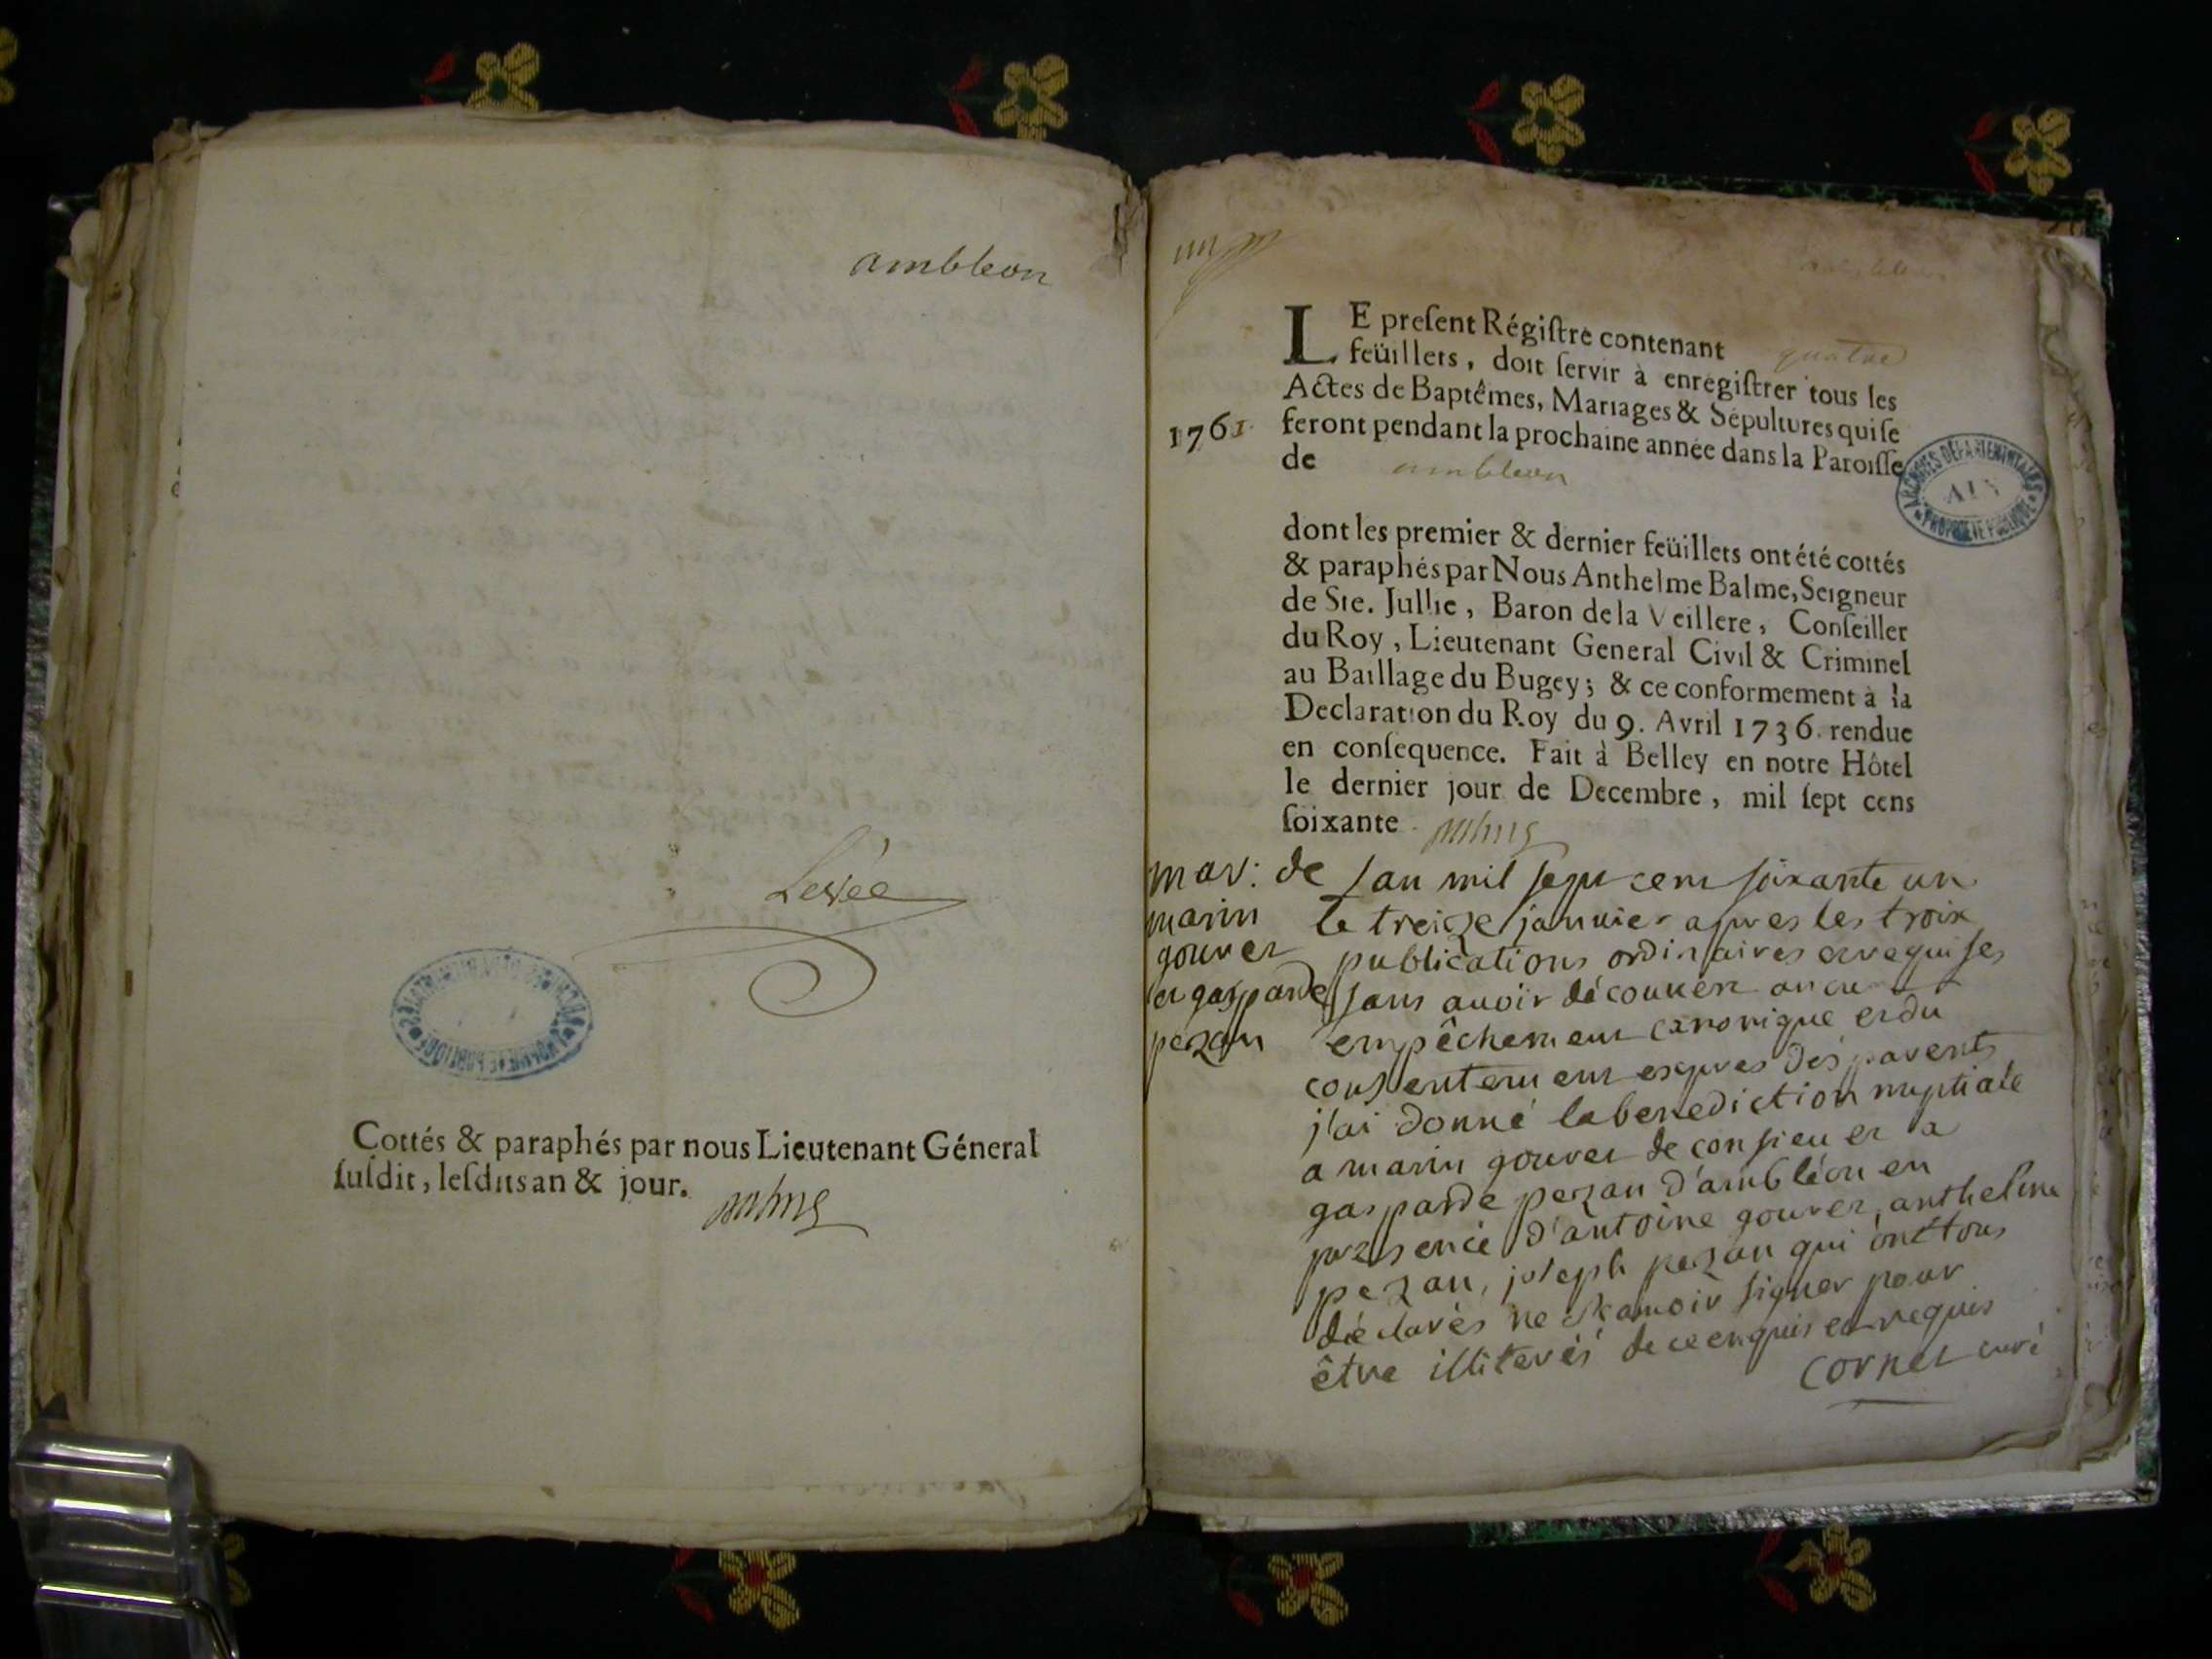 ambleon
Levée
Cottés & paraphés par nous Lieutenant Géneral
ſuſdit, leſdits an & jour.
un
LE preſent Régiſtre contenant quatre
feüillets, doit ſervir à enregiſtrer tous les
Actes de Baptêmes, Mariages & Sépultures qui ſe
1761. feront pendant la prochaine année dans la Paroiſſe
de ambleon
ARCHIVES DÉPARTEMENTALES
AIN
PROPRIÉTÉ PUBLIQUE
dont les premier & dernier feüillets ont été cottés
& paraphés par Nous Anthelme Balme, Seigneur
de Ste. Jullie, Baron de la Veillere, Conſeiller
du Roy, Lieutenant General Civil & Criminel
au Baillage du Bugey; & ce conformement à la
Declaration du Roy du 9. Avril 1736. rendue
en conſequence. Fait à Belley en notre Hôtel
le dernier jour de Decembre, mil ſept cens
ſoixante
mar: de
marin
gouvet
et gasparde
pezan
l'an mil sept cent soixante un
le treize janvier apres les troix
publications ordinaires et requises
sans avoir découvert aucun
empêchement canonique et du
consentement expres des parents
j'ai donné la benediction nuptiale
a marin gouvet de consieu et a
gasparde pezan d'ambléon en
presence d'antoine gouvet, anthelme
pezan, joseph pezan qui ont tous
déclarés ne sçauoir signer pour
être illiterés de ce enquis et requis
cornet curé